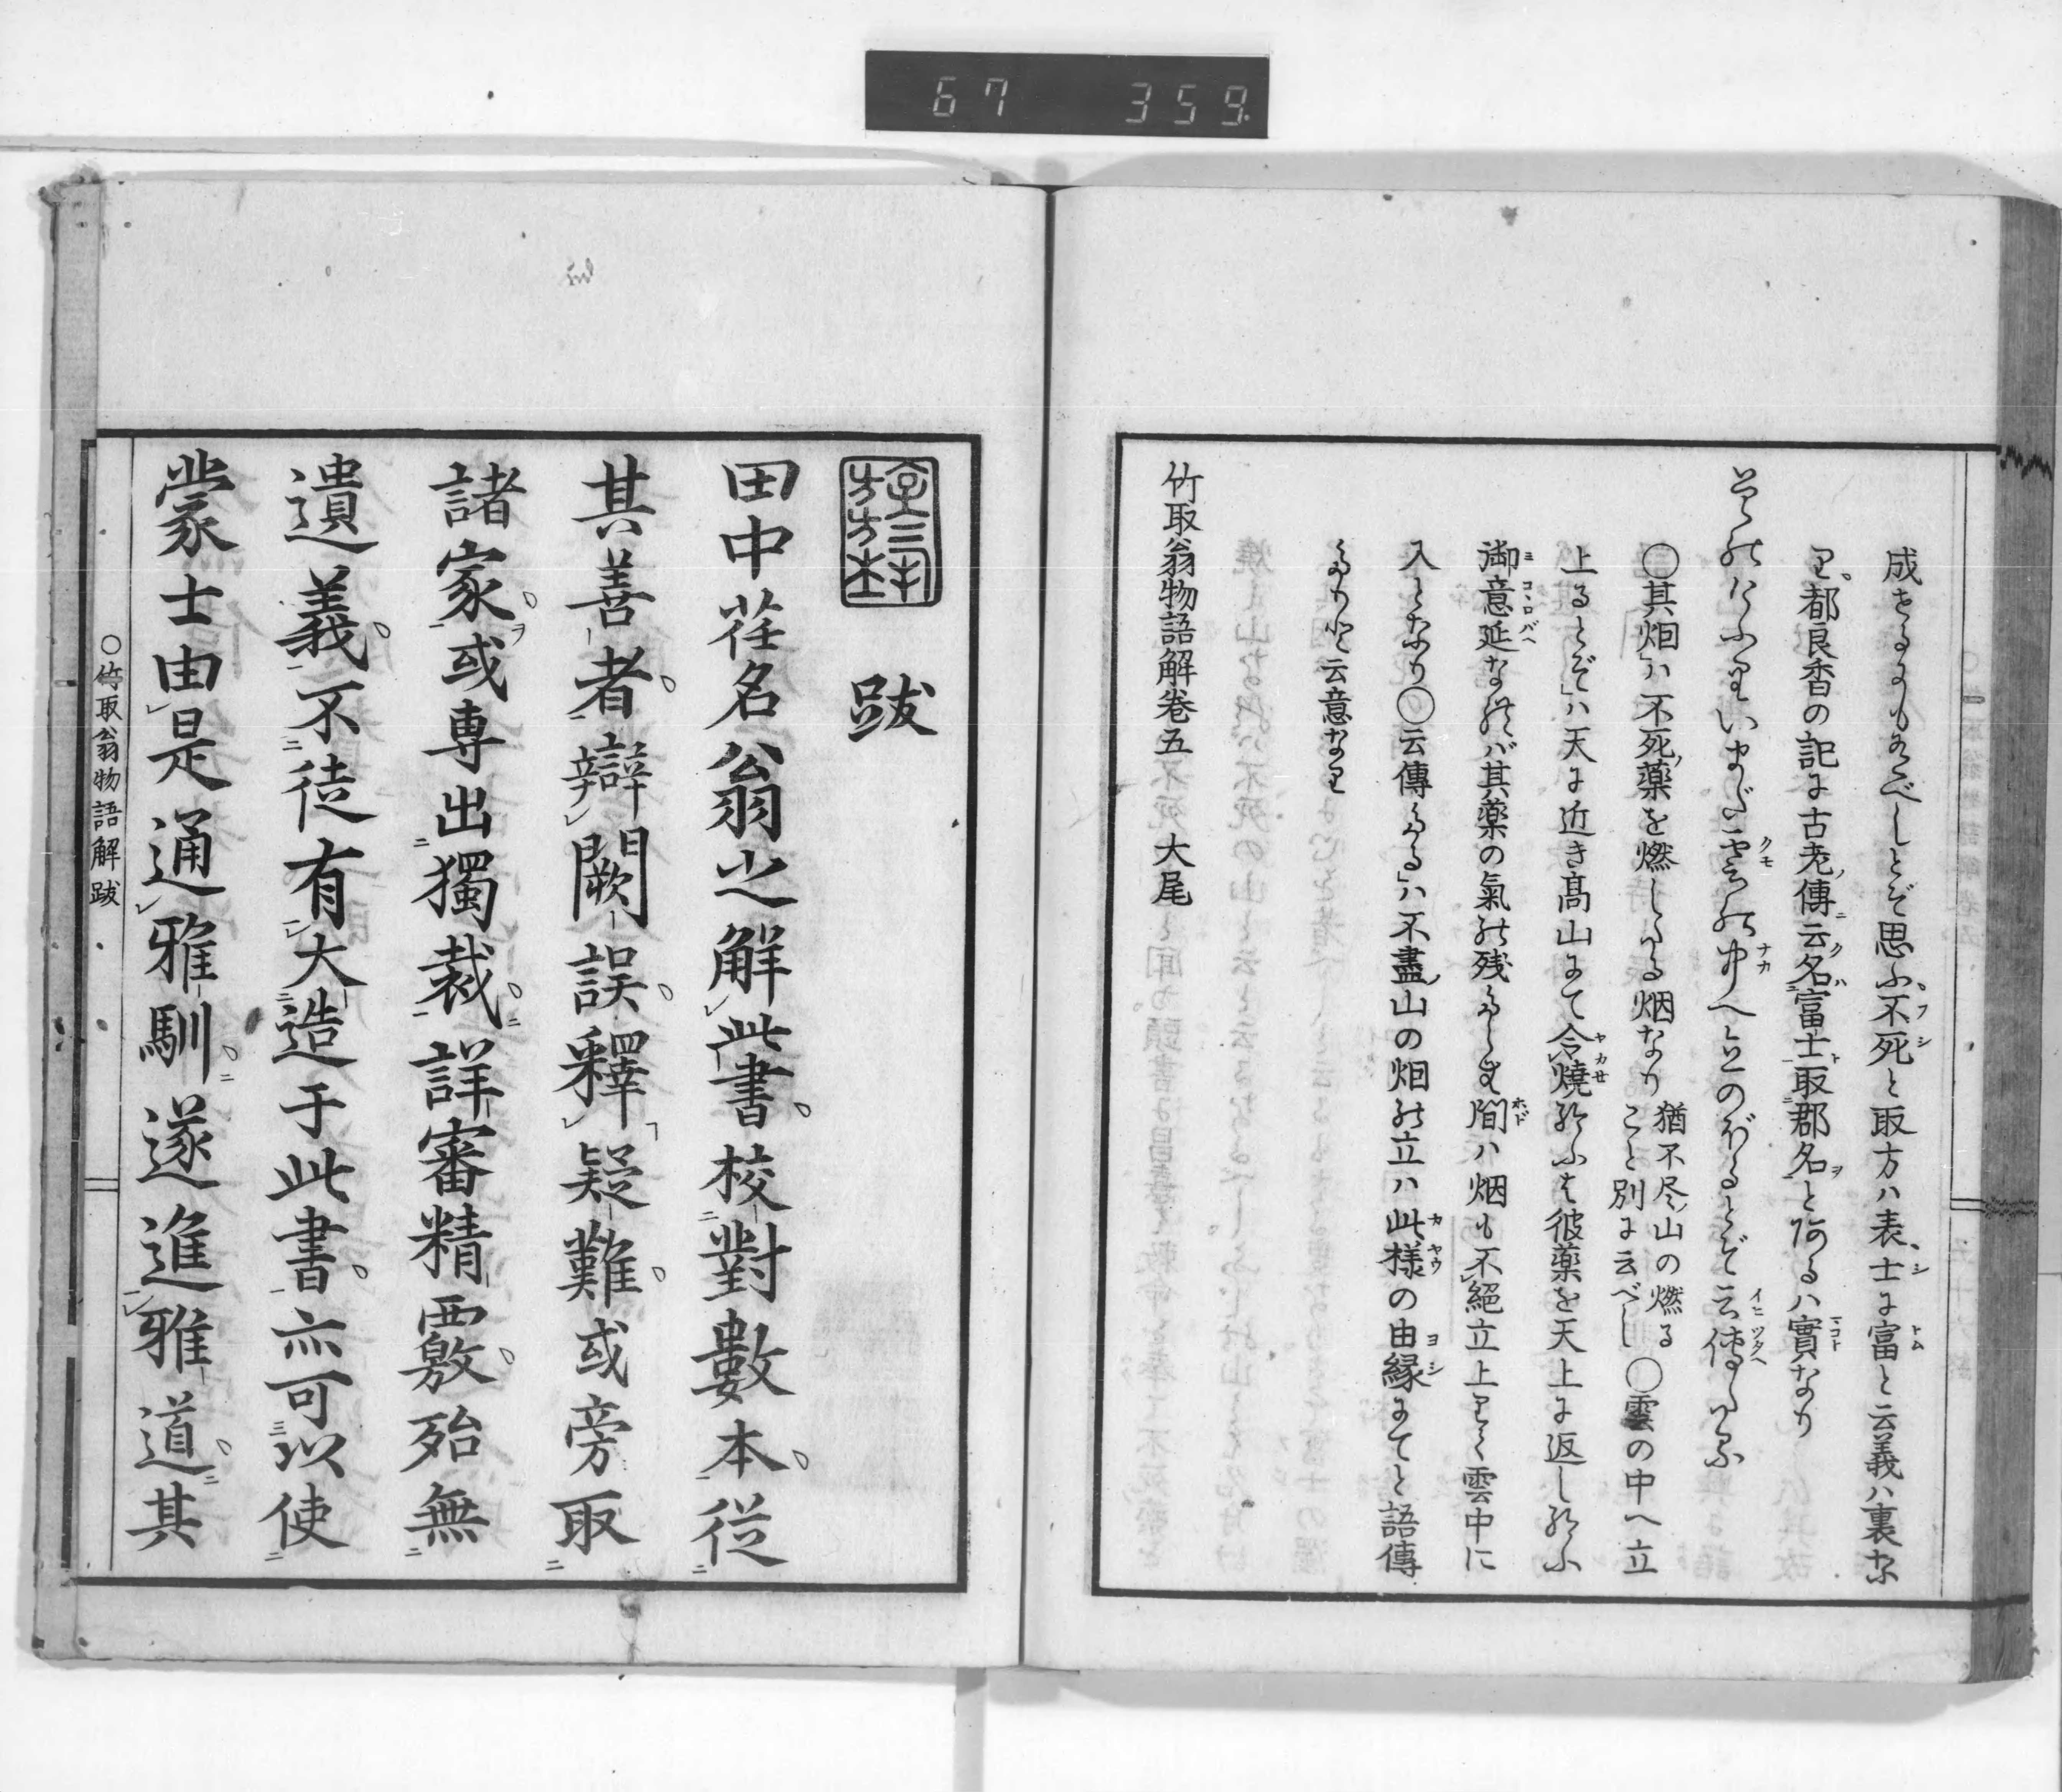 67 359
成せるにも有べしとぞ思ふ不死と取方ハ表士に富と云義ハ裏な
り都良香の記に古老傳云名富士取郡名と阿るハ實なり
其烟いまだ雲の中へ立のぼるとぞ云傳たる
○其烟ハ不死薬を燃したる烟なり猶不尽山の燃ることと別に云べし○雲の中へ立
上るとぞハ天に近き高山にて令焼給ふハ彼薬を天上に返し給ふ
御意延なれバ其薬の氣の残たらむ間ハ烟も不絕立上りて雲中に
入となり○云傳たるハ不盡山の烟の立ハ此様の由縁にてと語傳
たりと云意なり
竹取翁物語解巻五 大尾
跋
田中荏名翁之解此書校對數本従
其善者辯闕誤釋疑難或旁取
諸家或専出獨裁詳審精覈殆無
遺義不徒有大造于此書亦可以使
蒙士由是通雅馴遂進雅道其
○竹取翁物語解跋